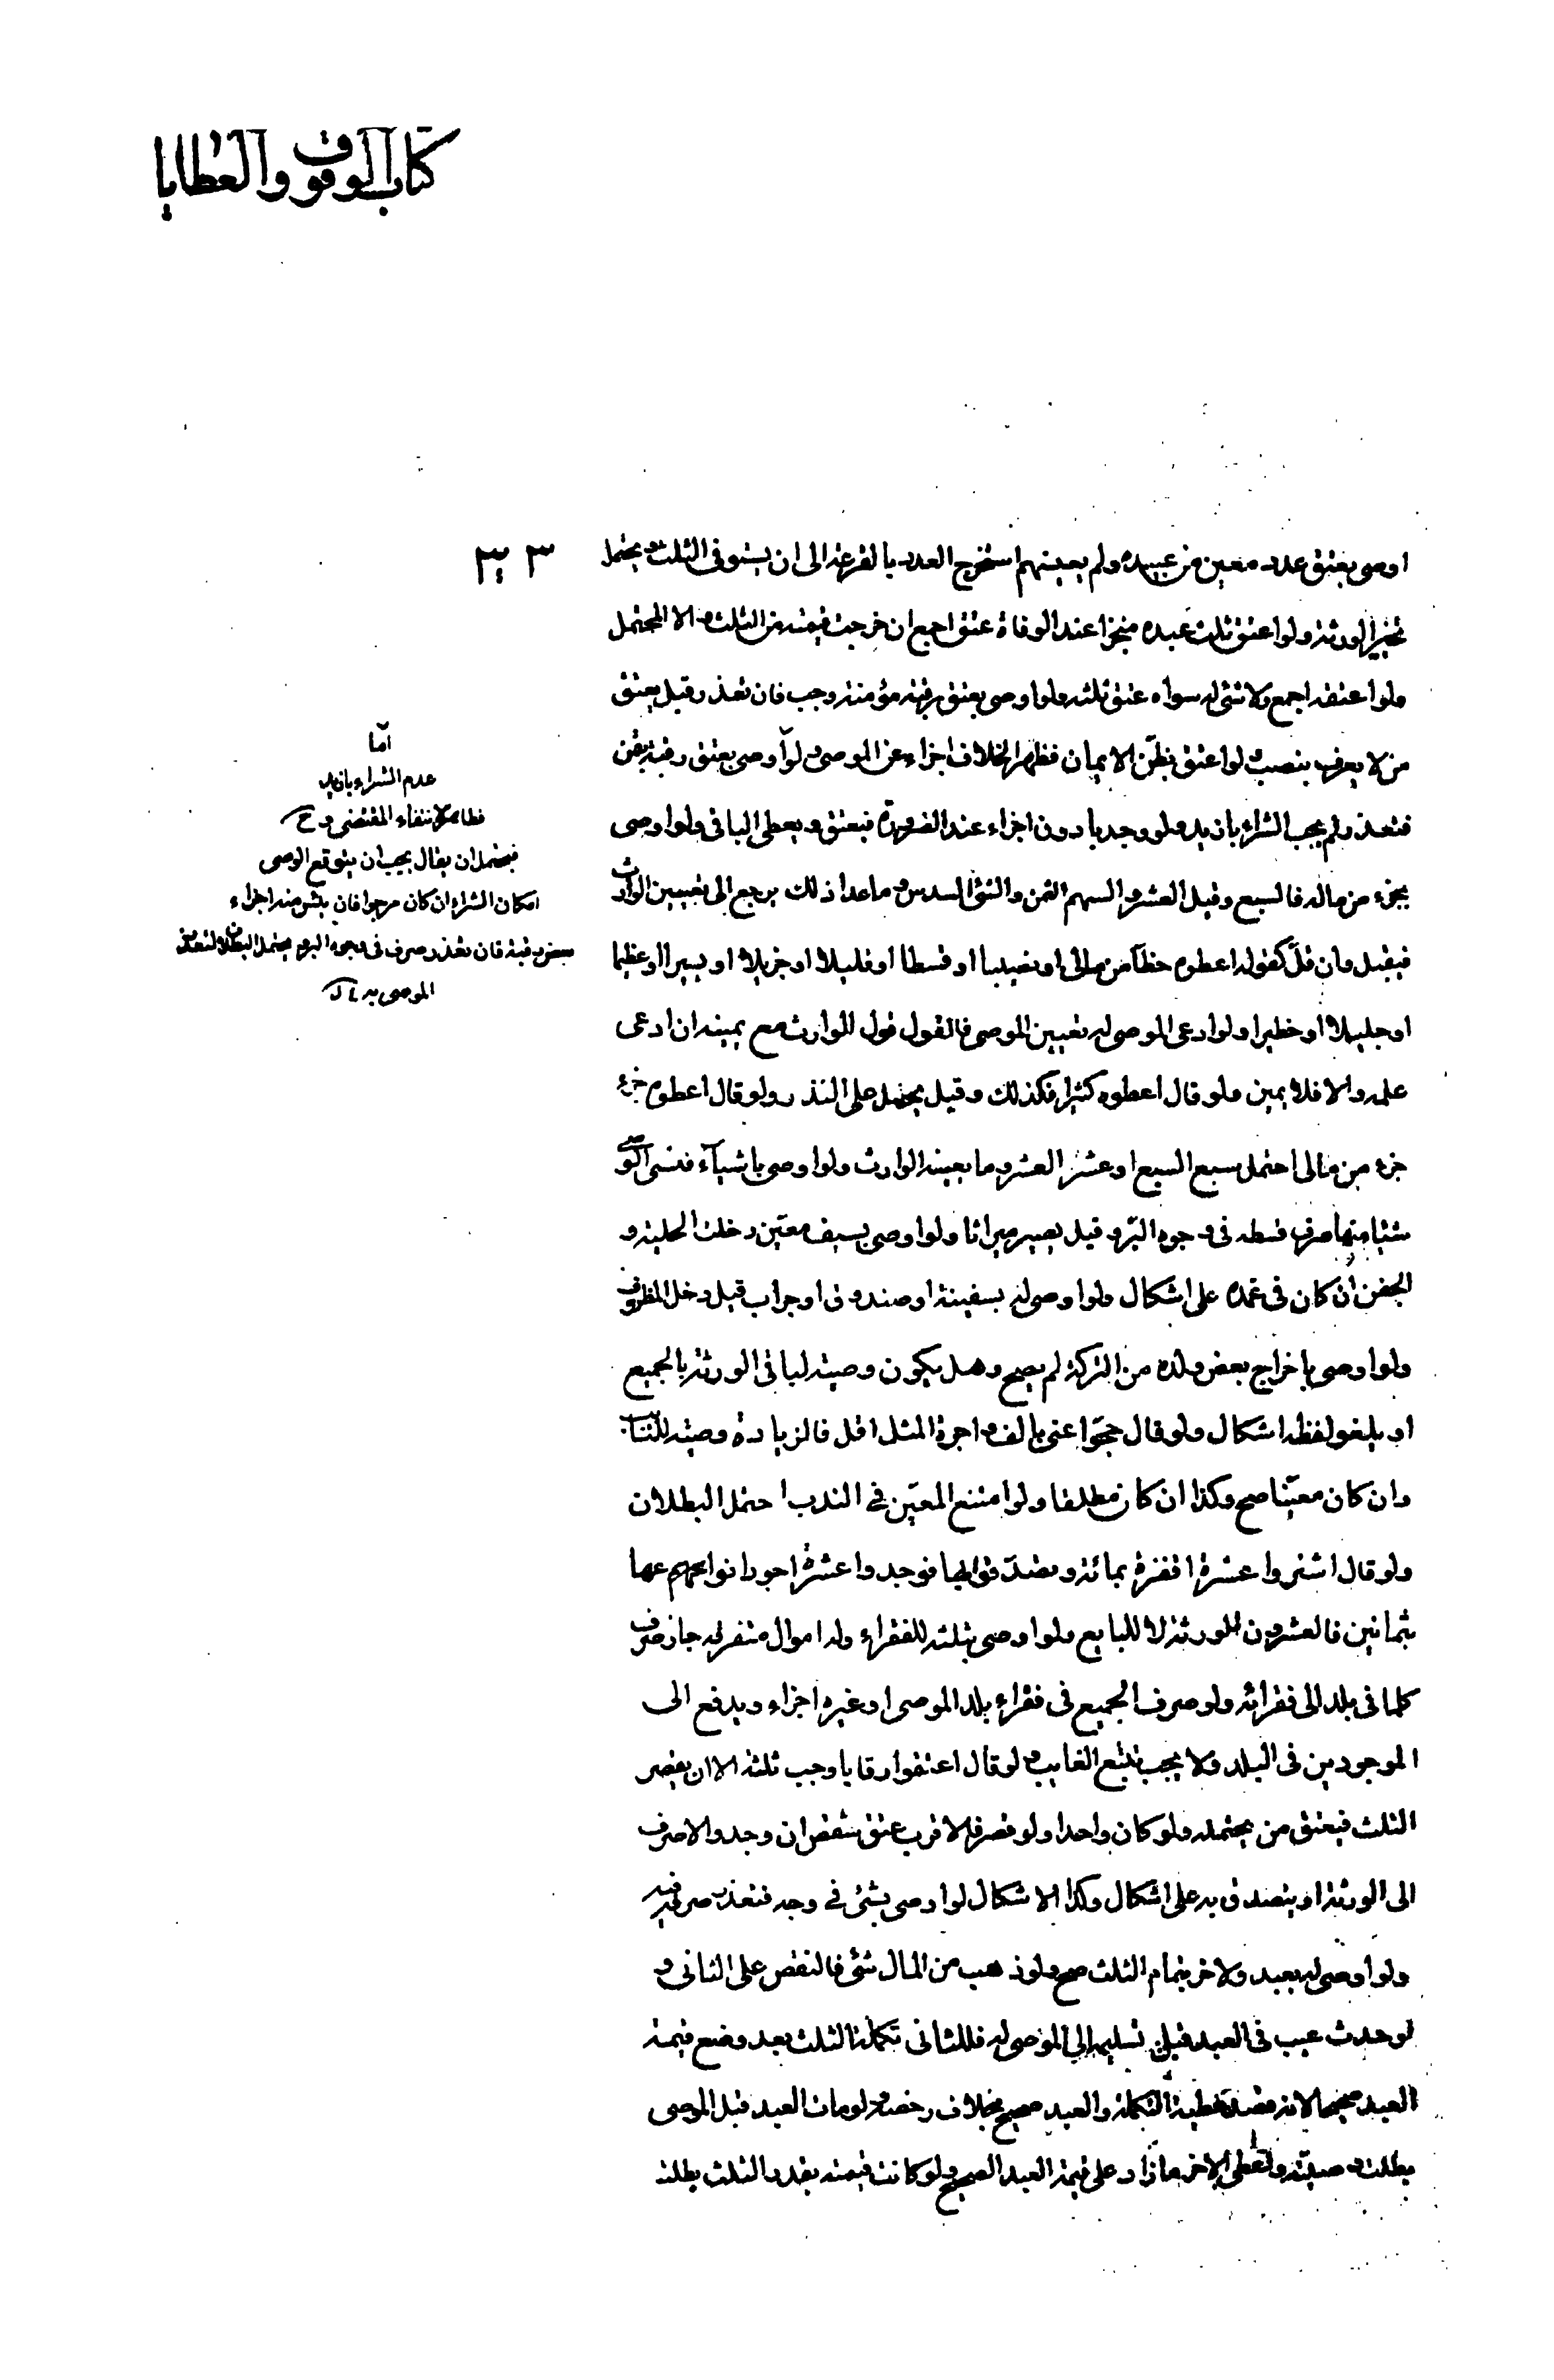 كتاب الوقوف والعطايا
اوصى بعتق عدد معين من عبيده ولم يعينهم استخرج العدد بالقرعة الى ان يستوفى الثلث ويحتمل
تخيّر الورثة ولو اعتق ثلث عبده منجزا عند الوفاة عتق اجمع ان خرجت قيمته من الثلث والا المحتمل
ولو اعتقه اجمع ولا شئ له سواه عتق ثلثه ولو اوصى بعتق رقبة مؤمنة وجب فان تعذر قيل يعتق
من لا يعرف بنصب ولو اعتق بظنّ الايمان فظهر الخلاف اجزاء عن الموصى ولو اوصى بعتق رقبة بثمن
فتعذر لم يجب الشراء بازيد ولو وجد بادون اجزاء عند الضرورة فيعتق ويعطى الباقى ولو اوصى
بجزء من ماله فالسبع وقيل العشر والسهم الثمن والشئ السدس وما عدا ذلك يرجع الى تعيين الوارث
فيقبل وان قلّ كقوله اعطوه حظّا من مالى او نصيبا او قسطا او قليلا او جزيلا او يسيرا او عظيما
او جليلا او خطيرا ولو ادعى الموصى له تعيين الموصى فالقول قول الوارث مع يمينه ان ادعى
علمه والا فلا يمين ولو قال اعطوه كثيرا فكذلك وقيل يحمل على النذر ولو قال اعطوه جزء
جزء من مالى احتمل سبع السبع او عشر العشر وما يعينه الوارث ولو اوصى باشياء فنسى الوصى
شئيا منها صرف قسطه فى وجوه البرّ وقيل يصير ميراثا ولو اوصى بسيف معيّن دخلت الحلية و
الجفن ان كان فى غمده على اشكال ولو اوصى له بسفينة او صندوق او جراب قيل دخل المظروف
ولو اوصى باخراج بعض ولده من التركة لم يصح وهل يكون وصية لباقى الورثة بالجميع
او يلغو لفظه اشكال ولو قال حجّوا عنى بالف واجرة المثل اقل فالزيادة وصية للنائب
وان كان معيّنا صح وكذا ان كان مطلقا ولو امتنع المعيّن فى الندب احتمل البطلان
ولو قال اشتروا عشرة اقفزة بمائة وتصدّقوا بها فوجدوا عشرة اجود انواعهم عها
بثمانين فالعشرون للورثة لا للبايع ولو اوصى بثلثه للفقراء وله اموال متفرقة جاز صرف
كلما فى بلد الى فقرائه ولو صرف الجميع فى فقراء بلد الموصى او غيره اجزاء ويدفع الى
الموجودين فى البلد ولا يجب تتبع الغايب ولو قال اعتقوا رقابا وجب ثلثة الا ان يقصر
الثلث فيعتق من يحتمله ولو كان واحدا ولو قصر فالاقرب عتق شقص ان وجد والا صرف
الى الورثة او يتصدق به على اشكال وكذا الاشكال لو اوصى بشئ فى وجه فتعذر صرفه فيه
ولو اوصى له بعبد ولاخر بتمام الثلث صح ولو ذهب من المال شئ فالنقص على الثانى و
لو حدث عيب فى العبد قبل تسليمه الى الموصى له فللثانى تكملة الثلث بعد وضع قيمة
العبد صحيحا لانه قصد عطية التكملة والعبد صحيح بخلاف رخصه ولو مات العبد قبل الموصى
بطلت وصيّته ولعطى الاخر ما زاد على قيمة العبد الصحيح ولو كانت قيمته بقدر الثلث بطلت
٣ ٣
امّا
عدم الشراء بازيد
فظاهر لانتفاء المقتضى وح
فيحتمل ان يقال يجب ان يتوقع الوصى
امكان الشراء ان كان مرجوا فان يئس منه اجزاء
بعض رقبة فان تعذر صرف فى وجوه البر ويحتمل البطلان لتعذر
الموصى به